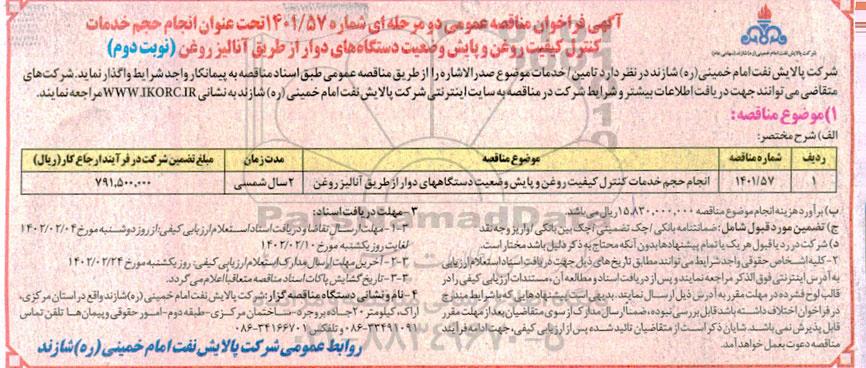 شرکت پالایش نفت امام خمینی (ره) شازند (سهامی عام)
آگهی فراخوان مناقصه عمومی دو مرحله ای شماره ۱۴۰۱/۵۷ تحت عنوان انجام حجم خدمات
کنترل کیفیت روغن و پایش وضعیت دستگاه‌های دوار از طریق آنالیز روغن (نوبت دوم)
شرکت پالایش نفت امام خمینی (ره) شازند در نظر دارد تامین / خدمات موضوع صدرالاشاره را از طریق مناقصه عمومی طبق اسناد مناقصه به پیمانکار واجد شرایط واگذار نماید. شرکت‌های
متقاضی می توانند جهت دریافت اطلاعات بیشتر و شرایط شرکت در مناقصه به سایت اینترنتی شرکت پالایش نفت امام خمینی (ره) شازند به نشانی WWW.IKORC.IR مراجعه نمایند.
۱) موضوع مناقصه:
الف) شرح مختصر:
ردیف شماره مناقصه موضوع مناقصه مدت زمان مبلغ تضمین شرکت در فرآیند ارجاع کار (ریال)
۱ ۱۴۰۱/۵۷ انجام حجم خدمات کنترل کیفیت روغن و پایش وضعیت دستگاههای دوار از طریق آنالیز روغن ۲ سال شمسی ۷۹۱,۵۰۰,۰۰۰
ب) برآورد هزینه انجام موضوع مناقصه ۱۵,۸۳۰,۰۰۰,۰۰۰ ریال می باشد.
ج) تضمین مورد قبول شامل: ضمانتنامه بانکی / چک تضمینی / چک بین بانکی / واریز وجه نقد
د) شرکت در رد یا قبول هر یک یا تمام پیشنهادها بدون آنکه محتاج به ذکر دلیل باشد مختار است.
۲- کلیه اشخاص حقوقی واجد شرایط می توانند مطابق تاریخ های ذیل جهت دریافت اسناد استعلام ارزیابی
به آدرس اینترنتی فوق الذکر مراجعه نمایند و پس از دریافت اسناد و مطالعه آن، مستندات ارزیابی کیفی را در
قالب لوح فشرده در مهلت مقرر به آدرس ذیل ارسال نمایند. بدیهی است پیشنهادهایی که با شرایط مندرج
در فراخوان اختلاف داشته باشد قابل بررسی نبوده، ضمناً ارسال مدارک از سوی متقاضیان بعد از مهلت مقرر
قابل پذیرش نمی باشد. شایان ذکر است از متقاضیان تائید شده پس از ارزیابی کیفی، جهت ادامه فرآیند
مناقصه دعوت بعمل خواهد آمد.
۳- مهلت دریافت اسناد:
۳-۱- مهلت ارسال تقاضا و دریافت اسناد استعلام ارزیابی کیفی: از روز دوشنبه مورخ ۱۴۰۲/۰۲/۰۴
لغایت روز یکشنبه مورخ ۱۴۰۲/۰۲/۱۰
۳-۲- آخرین مهلت ارسال مدارک استعلام ارزیابی کیفی: روز یکشنبه مورخ ۱۴۰۲/۰۲/۲۴
۳-۳- تاریخ گشایش پاکات اسناد مناقصه متعاقبا اعلام می گردد.
۴- نام و نشانی دستگاه مناقصه گزار: شرکت پالایش نفت امام خمینی (ره) شازند واقع در استان مرکزی،
اراک، کیلومتر ۲۰ جاده بروجرد - ساختمان مرکزی - طبقه دوم - امور حقوقی و پیمان‌ها تلفن تماس
۰۸۶-۳۳۴۹۱۰۹۱ و تلفکس ۰۸۶-۳۴۱۶۶۷۰۱
روابط عمومی شرکت پالایش نفت امام خمینی (ره) شازند